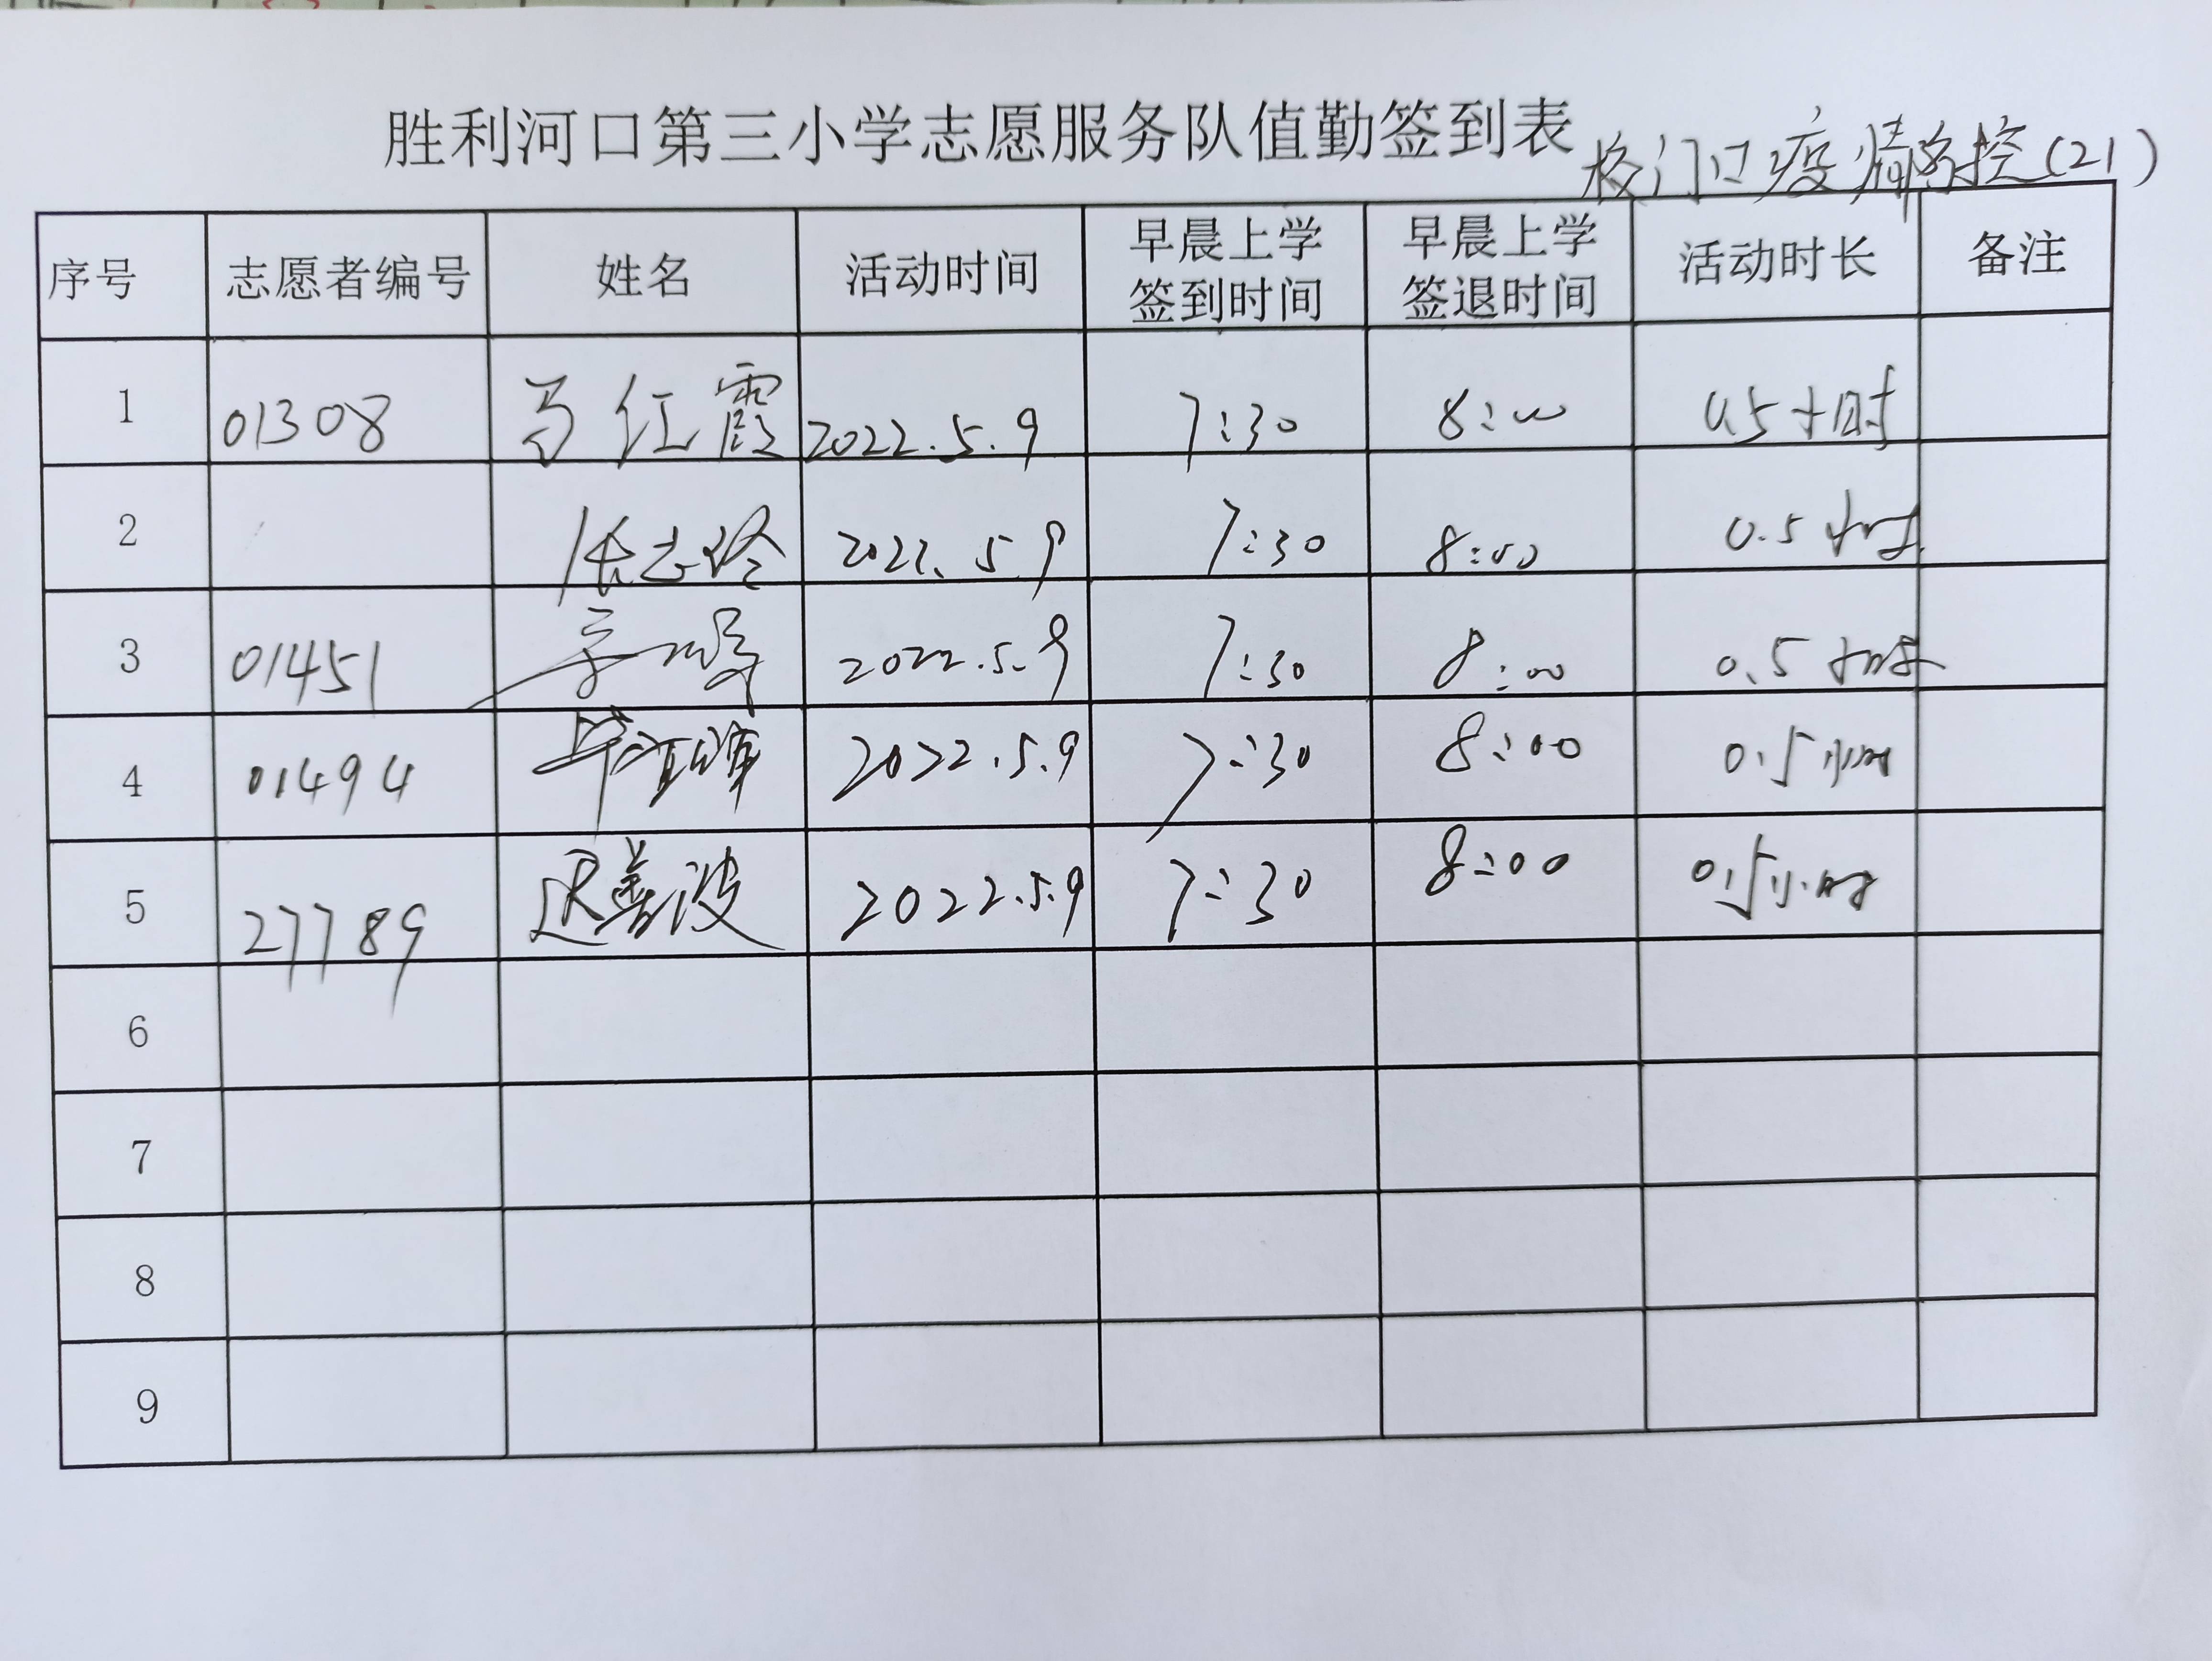 胜利河口第三小学志愿服务队值勤签到表
校门口疫情防控(21)
序号 志愿者编号 姓名 活动时间 早晨上学签到时间 早晨上学签退时间 活动时长 备注
1 01308 马红霞 2022.5.9 7:30 8:00 0.5小时
2 2022.5.9 7:30 8:00 0.5小时
3 01451 2022.5.9 7:30 8:00 0.5小时
4 01494 2022.5.9 7:30 8:00 0.5小时
5 27789 迟善波 2022.5.9 7:30 8:00 0.5小时
6
7
8
9